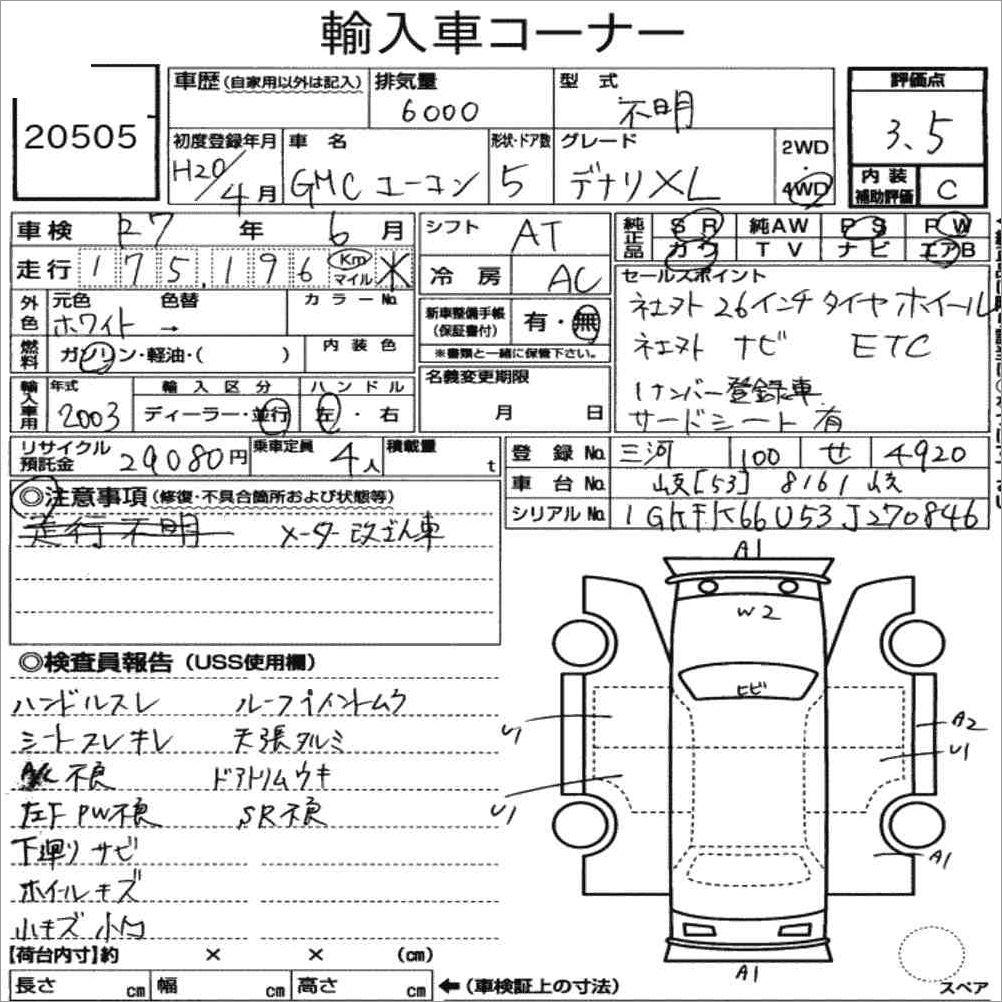 輸入車コーナー
20505
車歴(自家用以外は記入)
排気量 6000
型式 不明
評価点 3.5
初度登録年月 H20/4月
車名 GMC ユーコン
形状・ドア数 5
グレード デナリXL
2WD・4WD
内装補助評価 C
車検 27年 6月
走行 175,196 Km マイル
シフト AT
冷房 AC
純正品 SR 純AW PS PW
カワ TV ナビ エアB
セールスポイント
社外 26インチタイヤホイール
社外 ナビ ETC
1ナンバー登録車
サードシート有
外色 元色 ホワイト 色替 → カラーNo.
燃料 ガソリン・軽油・( ) 内装色
新車整備手帳(保証書付) 有・無
※書類と一緒に保管下さい。
輸入車用 年式 2003 輸入区分 ディーラー・並行 ハンドル 左・右
名義変更期限 月 日
リサイクル預託金 29080円 乗車定員 4人 積載量 t
登録No. 三河 100 せ 4920
車台No. 岐[53]8161岐
シリアルNo. 1GKFK66U53J270846
◎注意事項(修復・不具合箇所および状態等)
走行不明 メーター改ざん車
◎検査員報告(USS使用欄)
ハンドルスレ ルーフペイントムケ
シートスレキレ 天張タルミ
不良 ドアトリムウキ
左F PW不良 SR不良
下廻りサビ
ホイールキズ
小キズ 小凹
【荷台内寸】約 × × (cm)
長さ cm 幅 cm 高さ cm ←(車検証上の寸法)
A1
W2
ヒビ
U1
A2
U1
U1
A1
A1
スペア